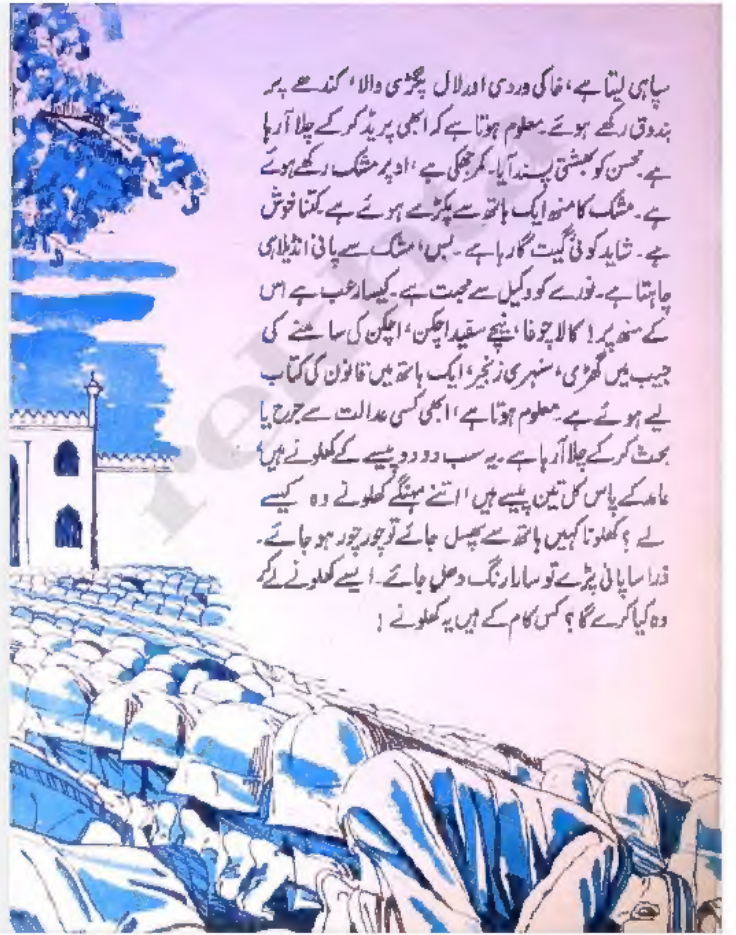 سپاہی لیتا ہے، خاکی وردی اور لال پگڑی والا، کندھے پر
بندوق رکھے ہوئے۔ معلوم ہوتا ہے کہ ابھی پریڈ کرکے چلا آرہا
ہے۔ محسن کو بھشتی پسند آیا۔ کمر جھکی ہے، اوپر مشک رکھے ہوئے
ہے۔ مشک کا منھ ایک ہاتھ سے پکڑے ہوئے ہے کتنا خوش
ہے۔ شاید کوئی گیت گارہا ہے۔ بس، مشک سے پانی انڈیلا ہی
چاہتا ہے۔ نورے کو وکیل سے محبت ہے۔ کیسا رعب ہے اس
کے منھ پر! کالا چوغا، نیچے سفید اچکن، اچکن کی سامنے کی
جیب میں گھڑی، سنہری زنجیر، ایک ہاتھ میں قانون کی کتاب
لیے ہوئے ہے۔ معلوم ہوتا ہے، ابھی کسی عدالت سے جرح یا
بحث کرکے چلا آرہا ہے۔ یہ سب دو دو پیسے کے کھلونے ہیں؛
حامد کے پاس کل تین پیسے ہیں، اتنے مہنگے کھلونے وہ کیسے
لے؟ کھلونا کہیں ہاتھ سے پھسل جائے تو چور چور ہو جائے۔
ذرا سا پانی پڑے تو سارا رنگ دھل جائے۔ ایسے کھلونے لے کر
وہ کیا کرے گا؟ کس کام کے ہیں یہ کھلونے!
rekhta